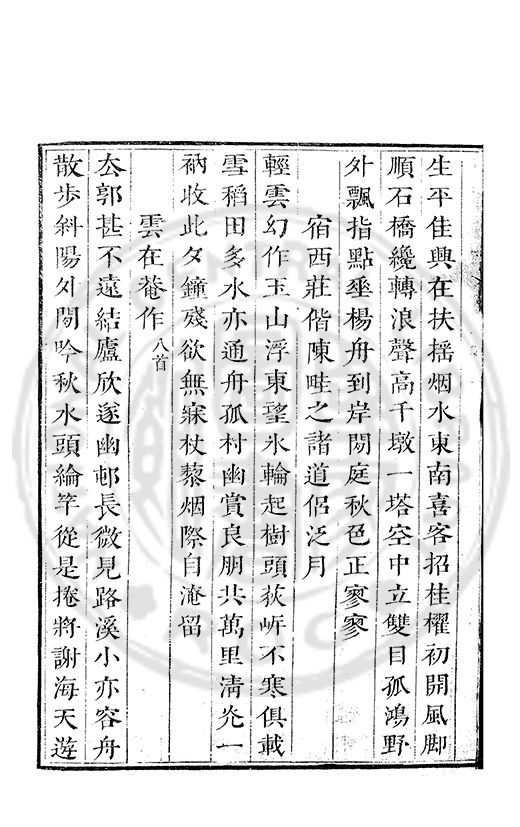 生平佳興在扶搖烟水東南喜客招桂櫂初開風脚
順石橋纔轉浪聲高千墩一塔空中立雙目孤鴻野
外飄指點埀楊舟到岸閒庭秋色正寥寥
宿西莊偕陳畦之諸道侶泛月
輕雲幻作玉山浮東望氷輪起樹頭荻㟁不寒俱載
雪稻田多水亦通舟孤村幽賞良朋共萬里淸光一
衲收此夕鐘殘欲無寐杖藜烟際自淹留
雲在菴作八首
厺郭甚不遠結廬欣遂幽邨長微見路溪小亦容舟
散步斜陽外閒吟秋水頭綸竿從是捲將謝海天遊